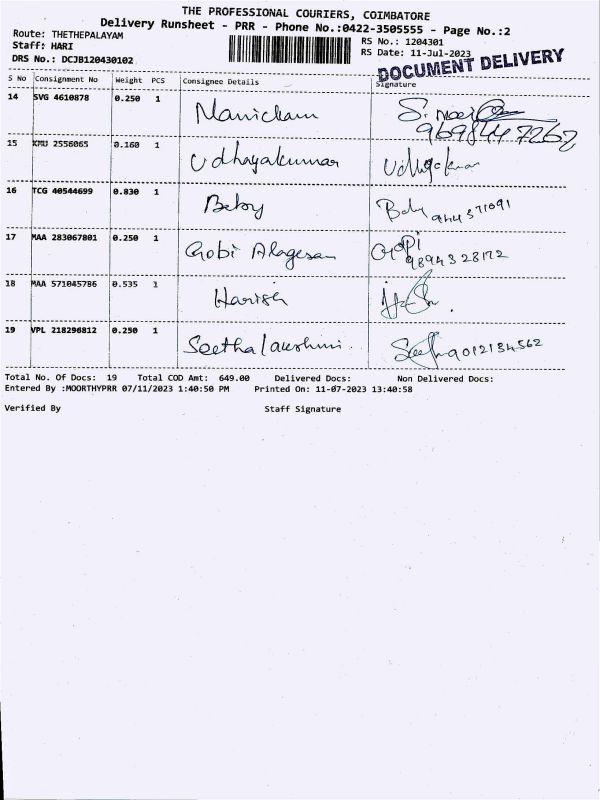 THE PROFESSIONAL COURIERS, COIMBATORE
Delivery Runsheet - PRR - Phone No.:0422-3505555 - Page No.:2
Route: THETHEPALAYAM
RS No.: 1204301
Staff: HARI
RS Date: 11-Jul-2023
DRS No.: DCJB120430102
DOCUMENT DELIVERY
S No Consignment No Weight PCS Consignee Details Signature
14 SVG 4610878 0.250 1 Manickam
15 KMU 2556065 0.160 1 Udhayakumar
16 TCG 40544699 0.830 1 Beboy
17 MAA 283067801 0.250 1 Gobi Alagesan Gopi
18 MAA 571045786 0.535 1 Harish
19 VPL 218296812 0.250 1 Seethalakshmi 9012134562
Total No. Of Docs: 19 Total COD Amt: 649.00 Delivered Docs: Non Delivered Docs:
Entered By :MOORTHYPRR 07/11/2023 1:40:50 PM Printed On: 11-07-2023 13:40:58
Verified By Staff Signature